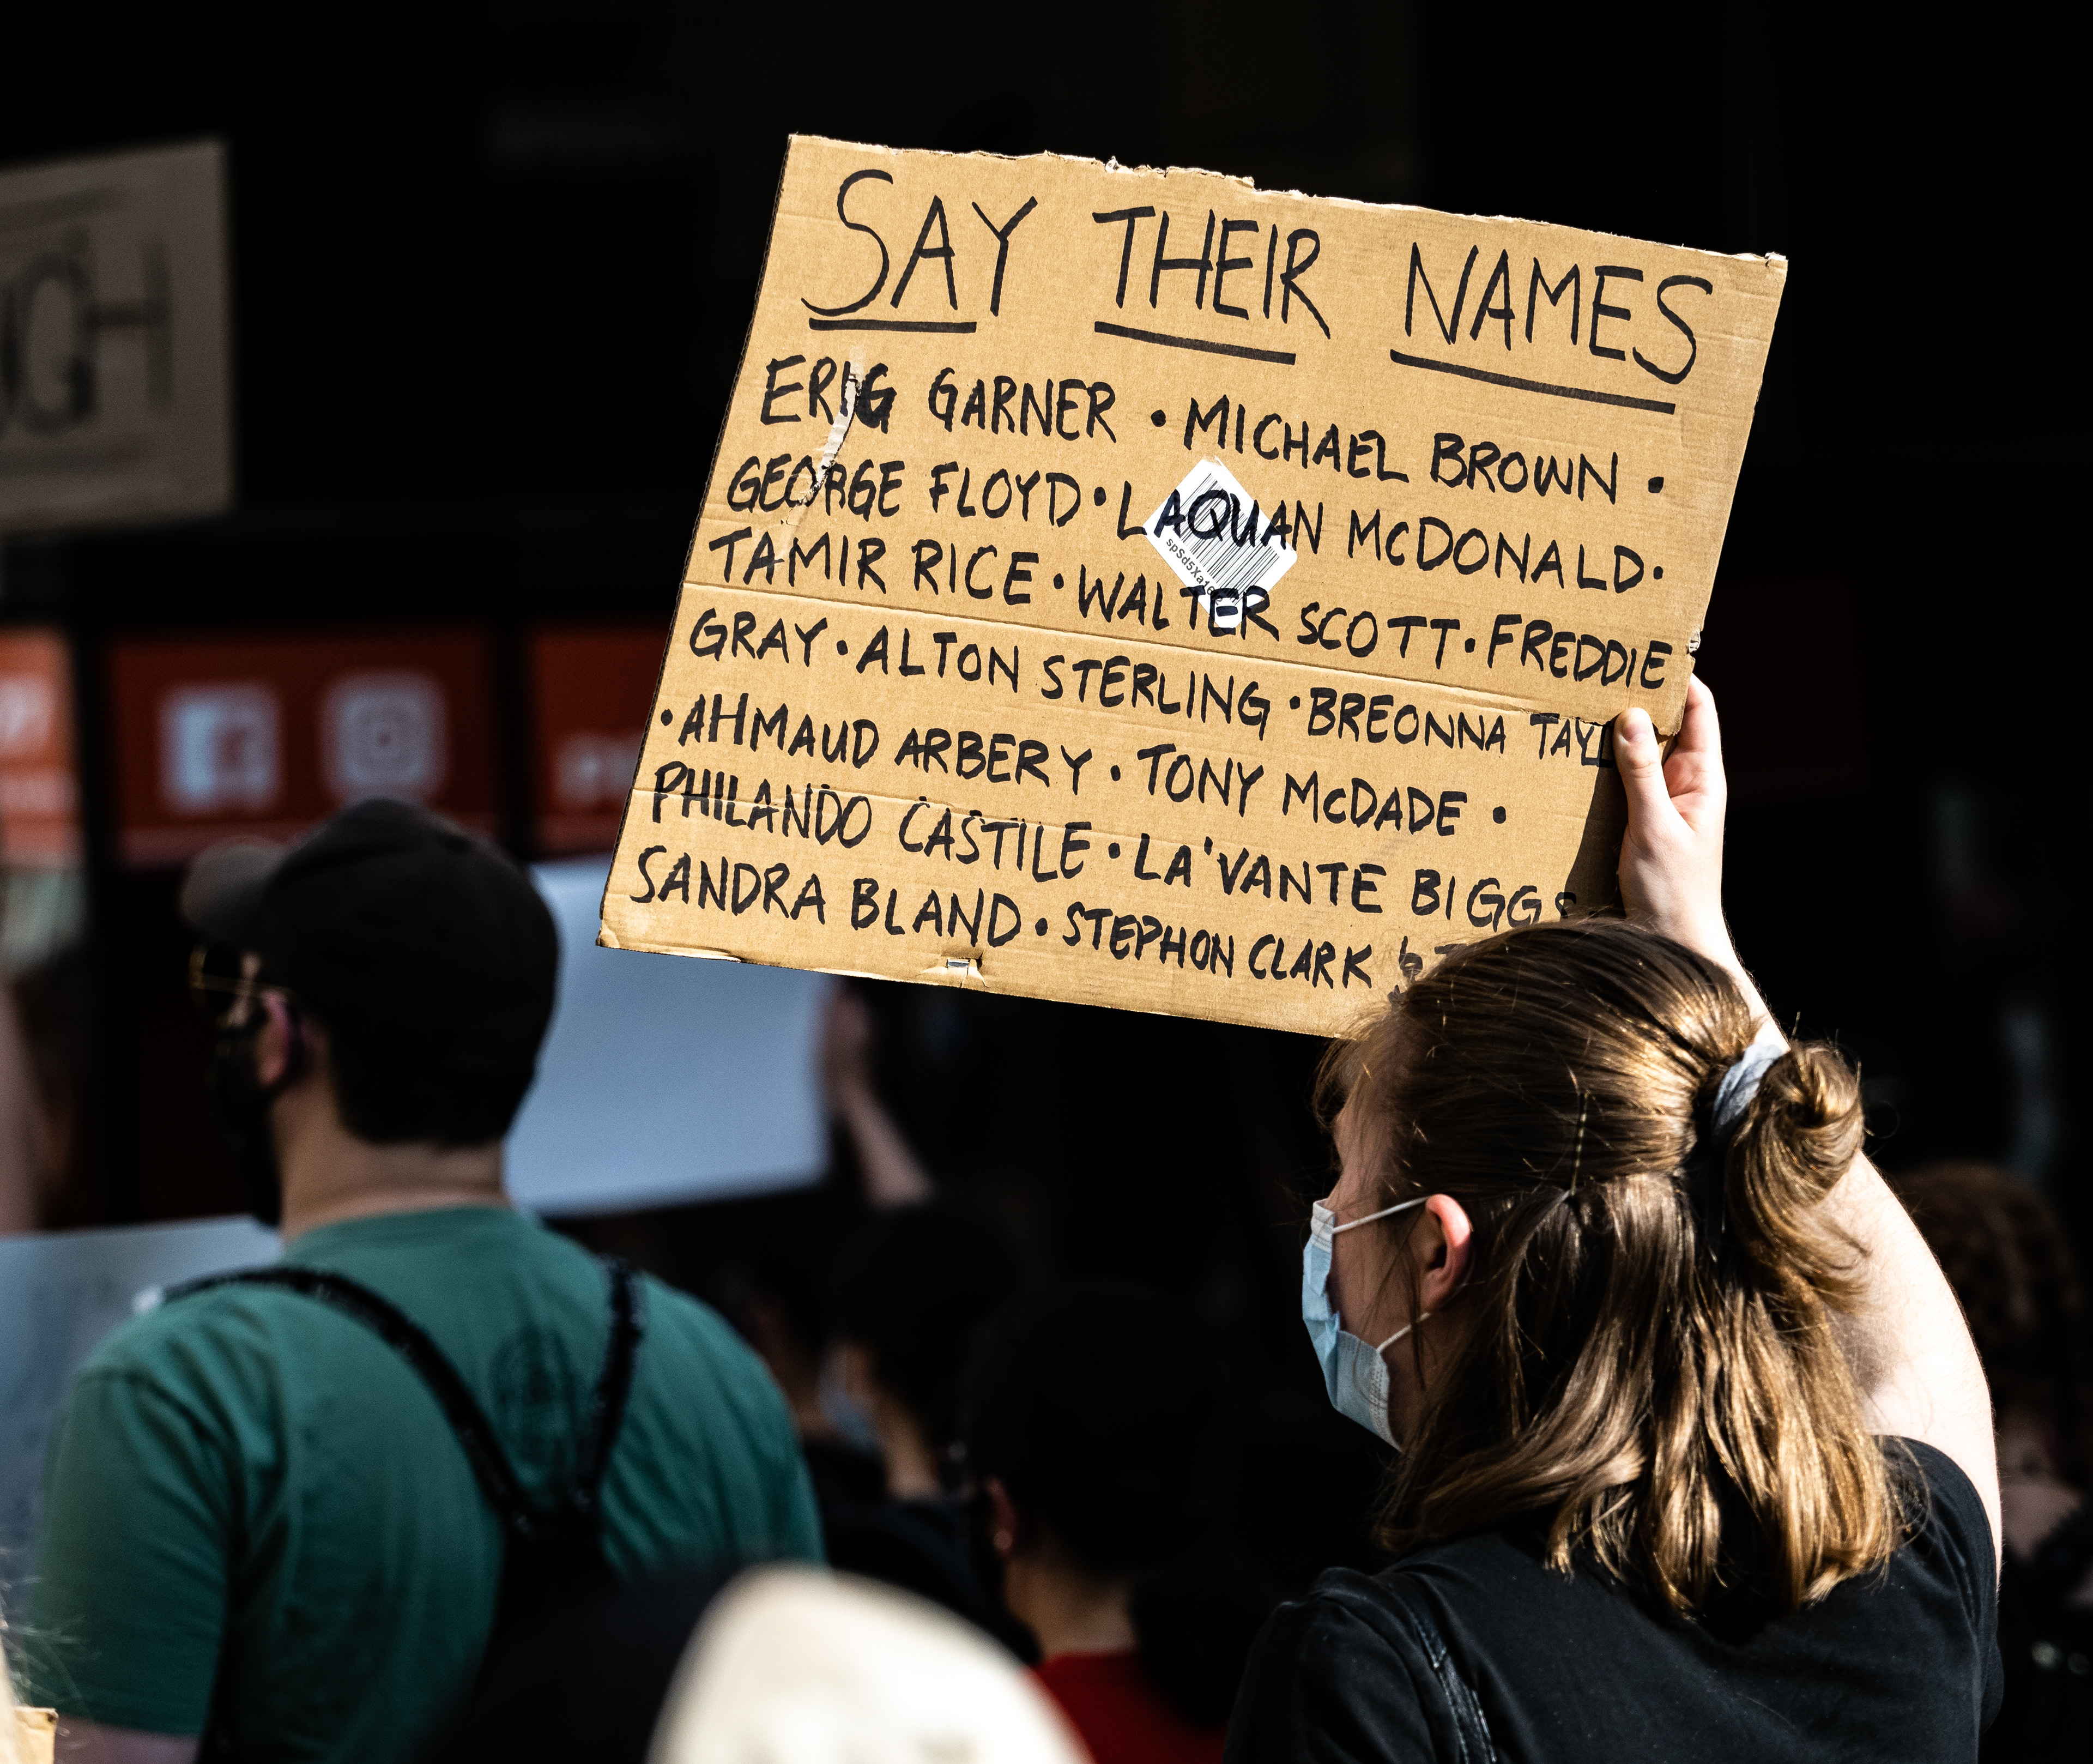 SAY THEIR NAMES
ERIC GARNER • MICHAEL BROWN •
GEORGE FLOYD • LAQUAN McDONALD •
TAMIR RICE • WALTER SCOTT • FREDDIE
GRAY • ALTON STERLING • BREONNA TAYL
• AHMAUD ARBERY • TONY McDADE •
PHILANDO CASTILE • LA'VANTE BIGGS
SANDRA BLAND • STEPHON CLARK
UGH